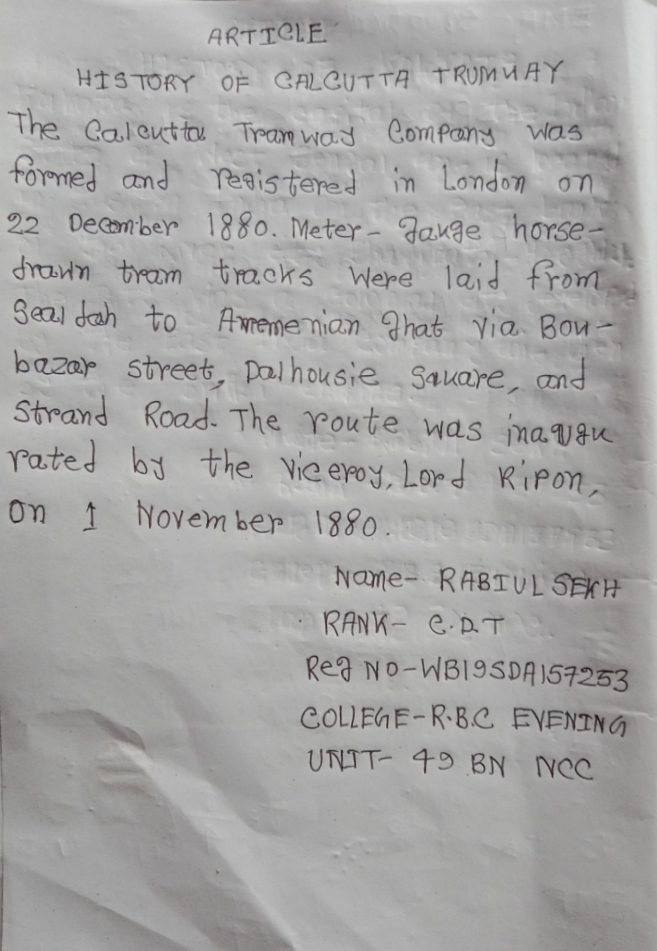 ARTICLE
HISTORY OF CALCUTTA TRUMWAY
The Calcutta Tramway Company was
formed and registered in London on
22 December 1880. Meter-gauge horse-
drawn tram tracks were laid from
Sealdah to Amemenian ghat via Bou-
bazar street, Dalhousie Square, and
Strand Road. The route was inaugu
rated by the viceroy, Lord Ripon,
on 1 November 1880.
Name- RABIUL SEKH
RANK- C.D.T
Reg NO-WB19SDA157253
COLLEGE-R.B.C EVENING
UNIT- 49 BN NCC